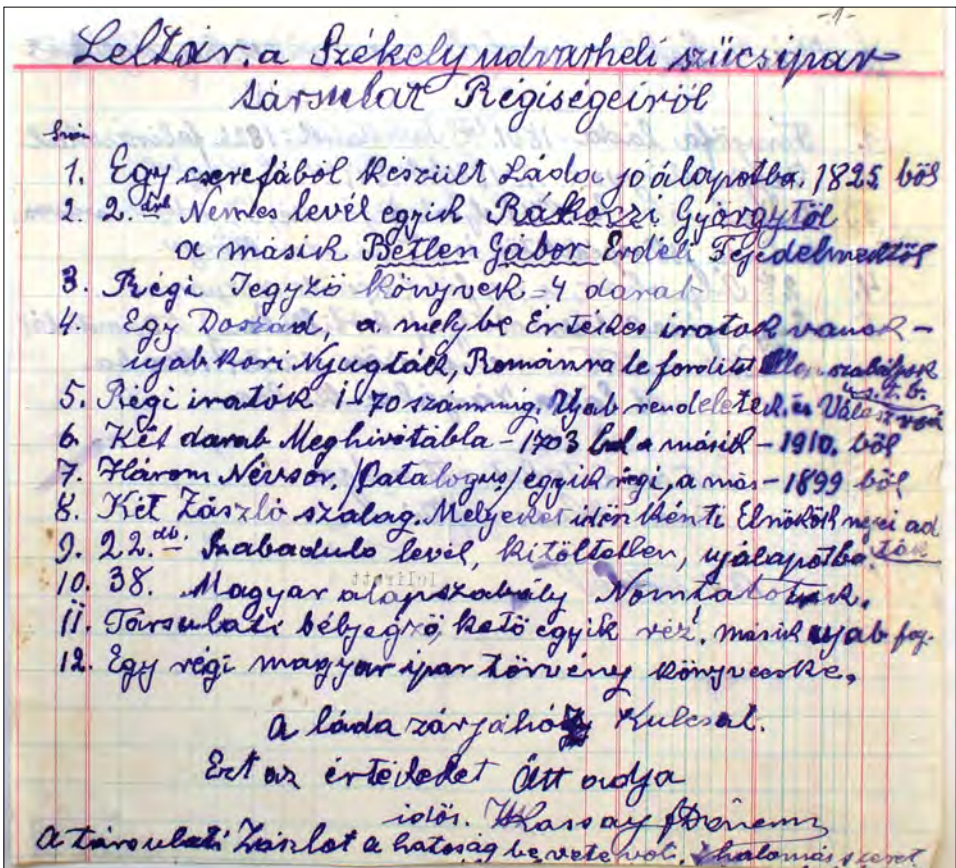 -1-
Leltár, a Székelyudvarheli szücsipar
társulat Régiségeiröl
1. Egy cserefából Készült Láda jó álapotba. 1825 böl
2. 2. drb Nemes levél egyik Rákoczi Györgytöl
a másik Betlen Gábor Erdéli Fejedelmektöl
3. Régi Jegyzö Könyvek = 4 darab
4. Egy Doszád, a melybe Értékes iratok vanok -
ujabkori Nyugták, Románra le forditot szabályok
u.s.t.b.
5. Régi iratók 1-70 számmig. Ujab rendeletek és
6. Két darab Meghivótábla - 1703 bol a másik - 1910. böl
7. Három Névsor, /Catalogus/ egyik régi, a más - 1899 böl
8. Két Zászló szalag. Melyeket idönkénti Elnökök nejei ad
ták
9. 22. db. Szabaduló levél, kitöltetlen, ujálapotba.
10. 38. Magyar alapszabály Nomtatotuk.
11. Társulati bélyegzö, ketö egyik réz, másik ujab fog.
12. Egy régi magyar ipar törvény könyvecske,
a láda zárjához Kulcsal.
Ezt az értékeket Átt adja
idös. Kassay Dénem
A társulati Zászlot a hatoság be vete volt,